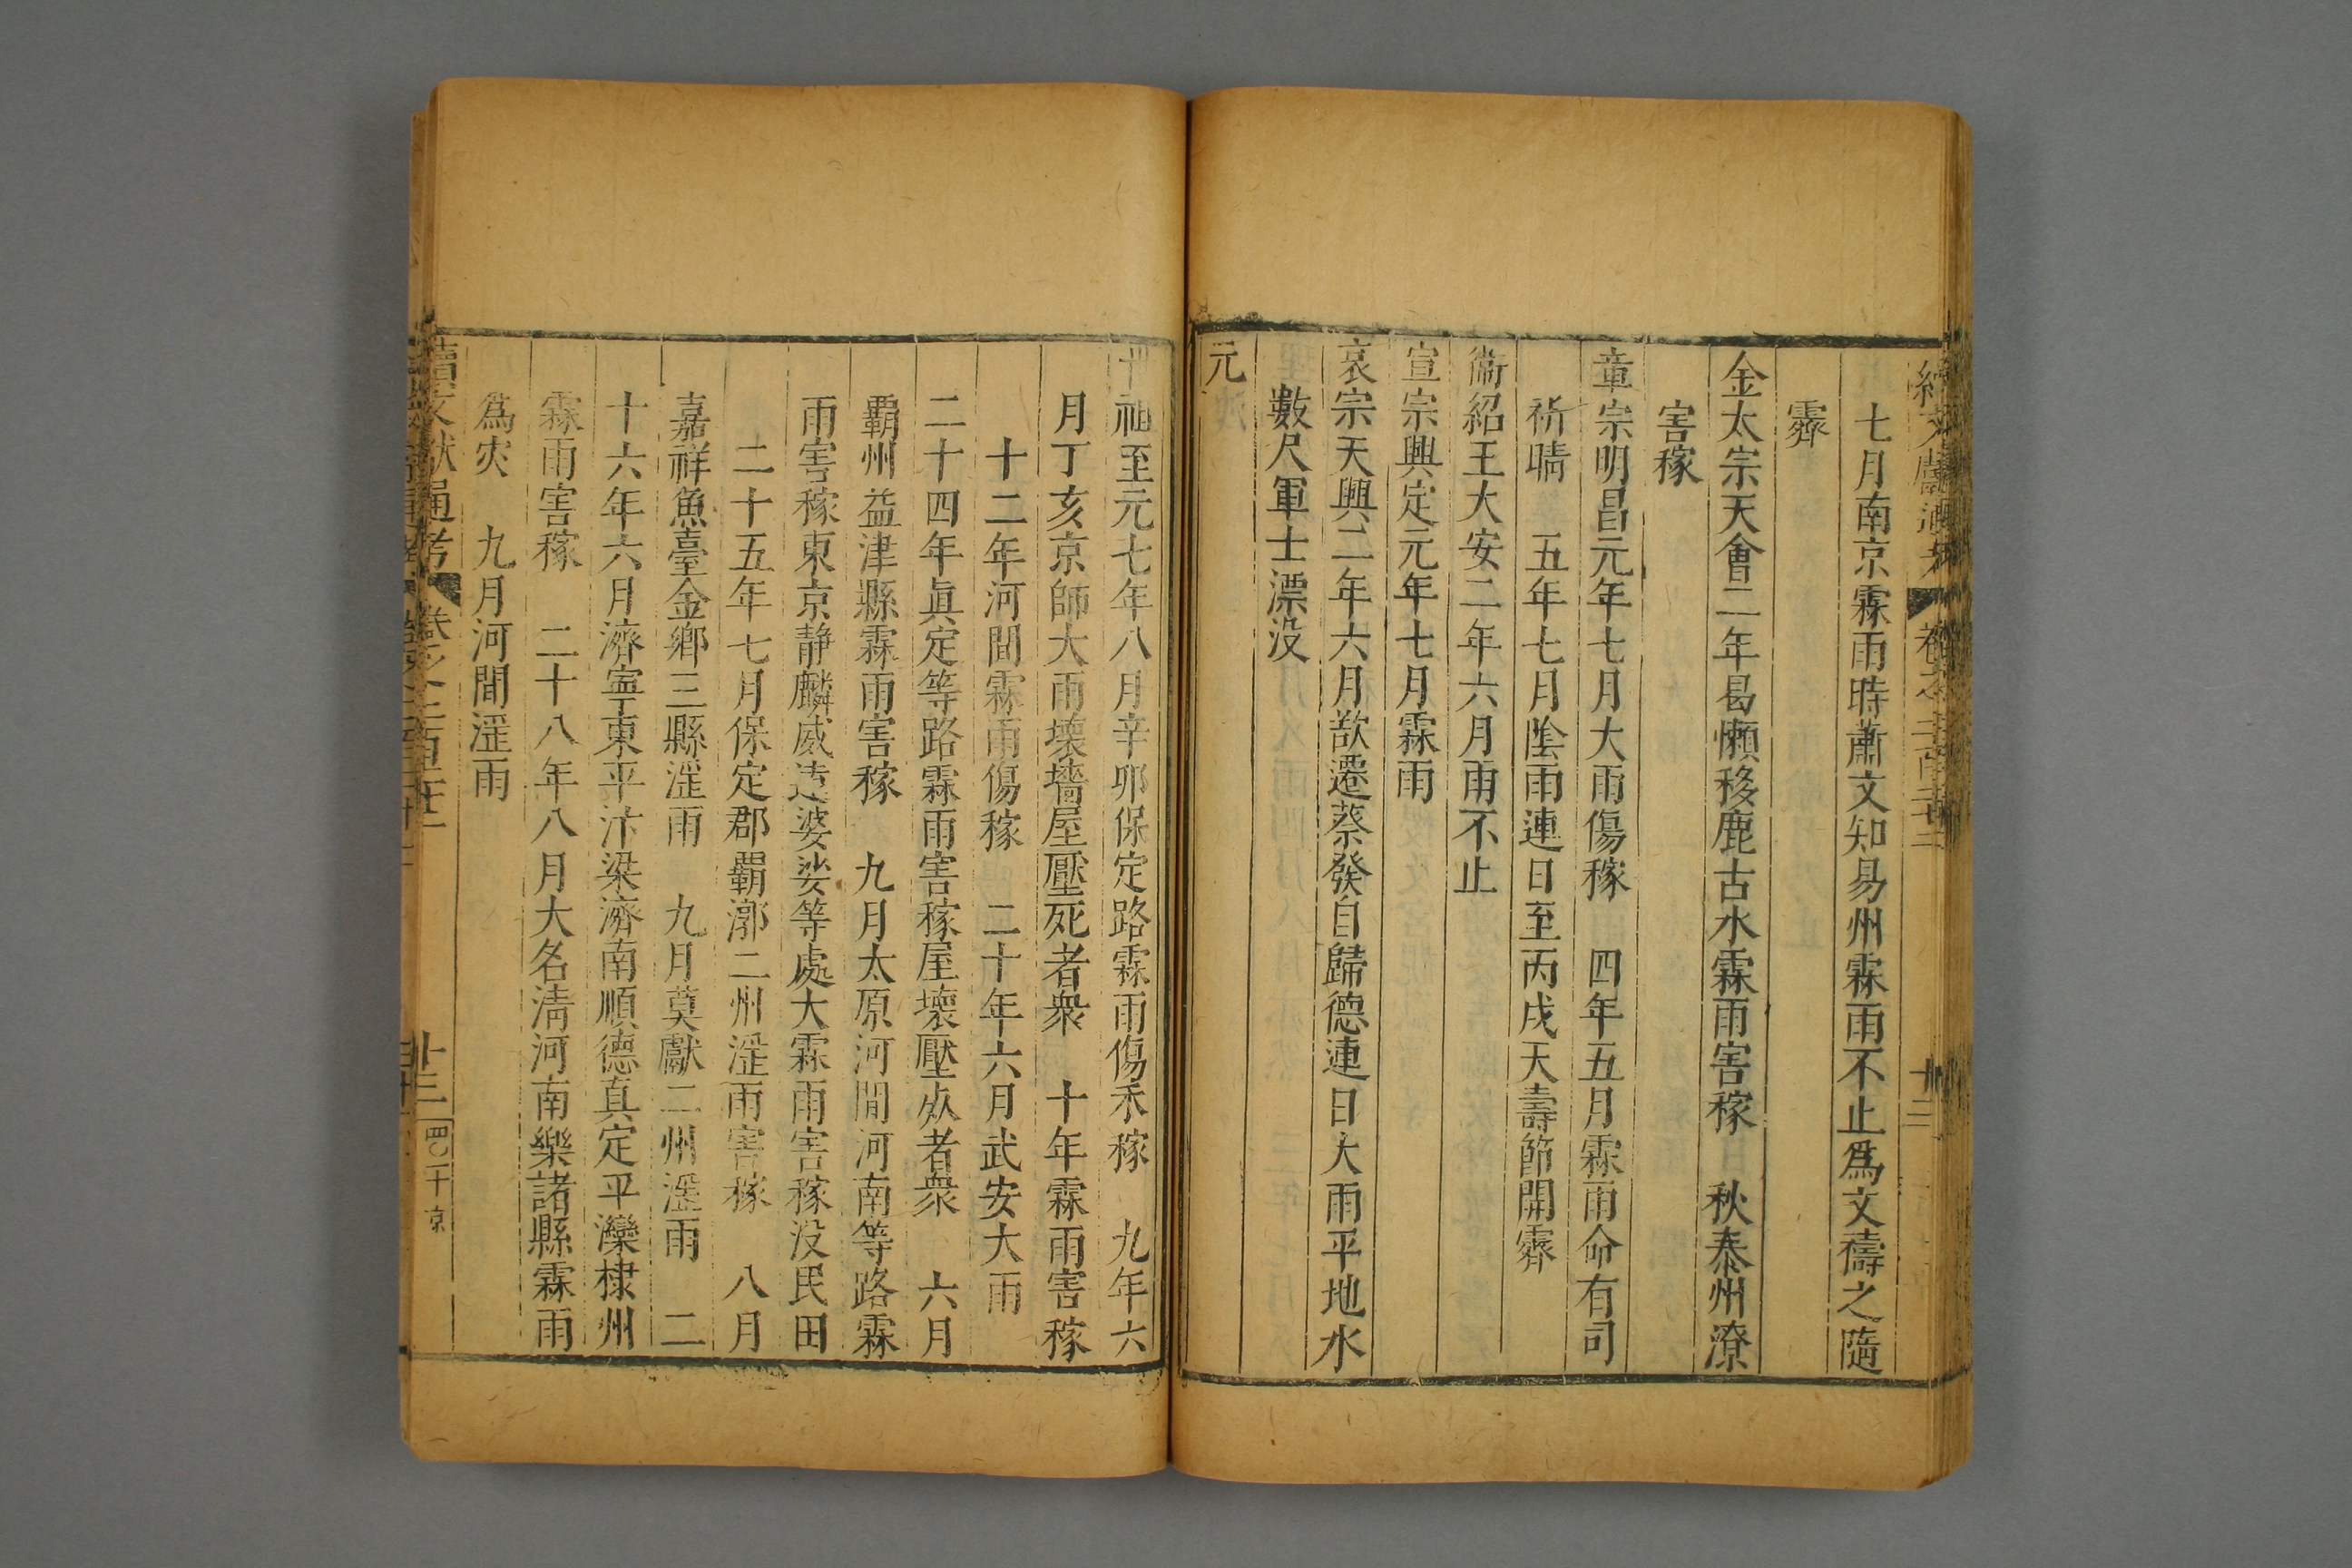 七月南京霖雨時蕭文知易州霖雨不止爲文禱之隨
霽
金太宗天會二年曷懶移鹿古水霖雨害稼 秋泰州潦
害稼
章宗明昌元年七月大雨傷稼 四年五月霖雨命有司
祈晴 五年七月陰雨連日至丙戌天壽節開霽
衞紹王大安二年六月雨不止
宣宗興定元年七月霖雨
哀宗天興二年六月欲遷蔡發自歸德連日大雨平地水
數尺軍士漂没
元
世祖至元七年八月辛卯保定路霖雨傷禾稼 九年六
月丁亥京師大雨壞墻屋壓死者衆 十年霖雨害稼
十二年河間霖雨傷稼 二十年六月武安大雨
二十四年眞定等路霖雨害稼屋壞壓死者衆 六月
覇州益津縣霖雨害稼 九月太原河間河南等路霖
雨害稼東京静麟威遠婆娑等處大霖雨害稼没民田
二十五年七月保定郡覇漷二州淫雨害稼 八月
嘉祥魚臺金鄉三縣淫雨 九月莫獻二州淫雨 二
十六年六月濟寧東平汴梁濟南順德真定平灤棣州
霖雨害稼 二十八年八月大名淸河南樂諸縣霖雨
爲灾 九月河間淫雨
續文獻通考 卷之二百二十二
十三
四〇 千 京